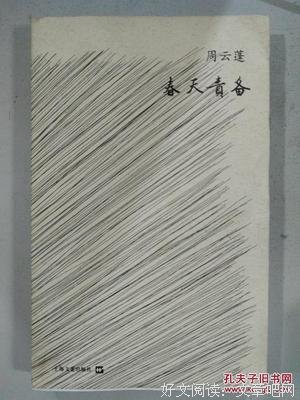 周云蓬
春天责备
上海文艺出版社
孔夫子旧书网
好文阅读：文章吧网